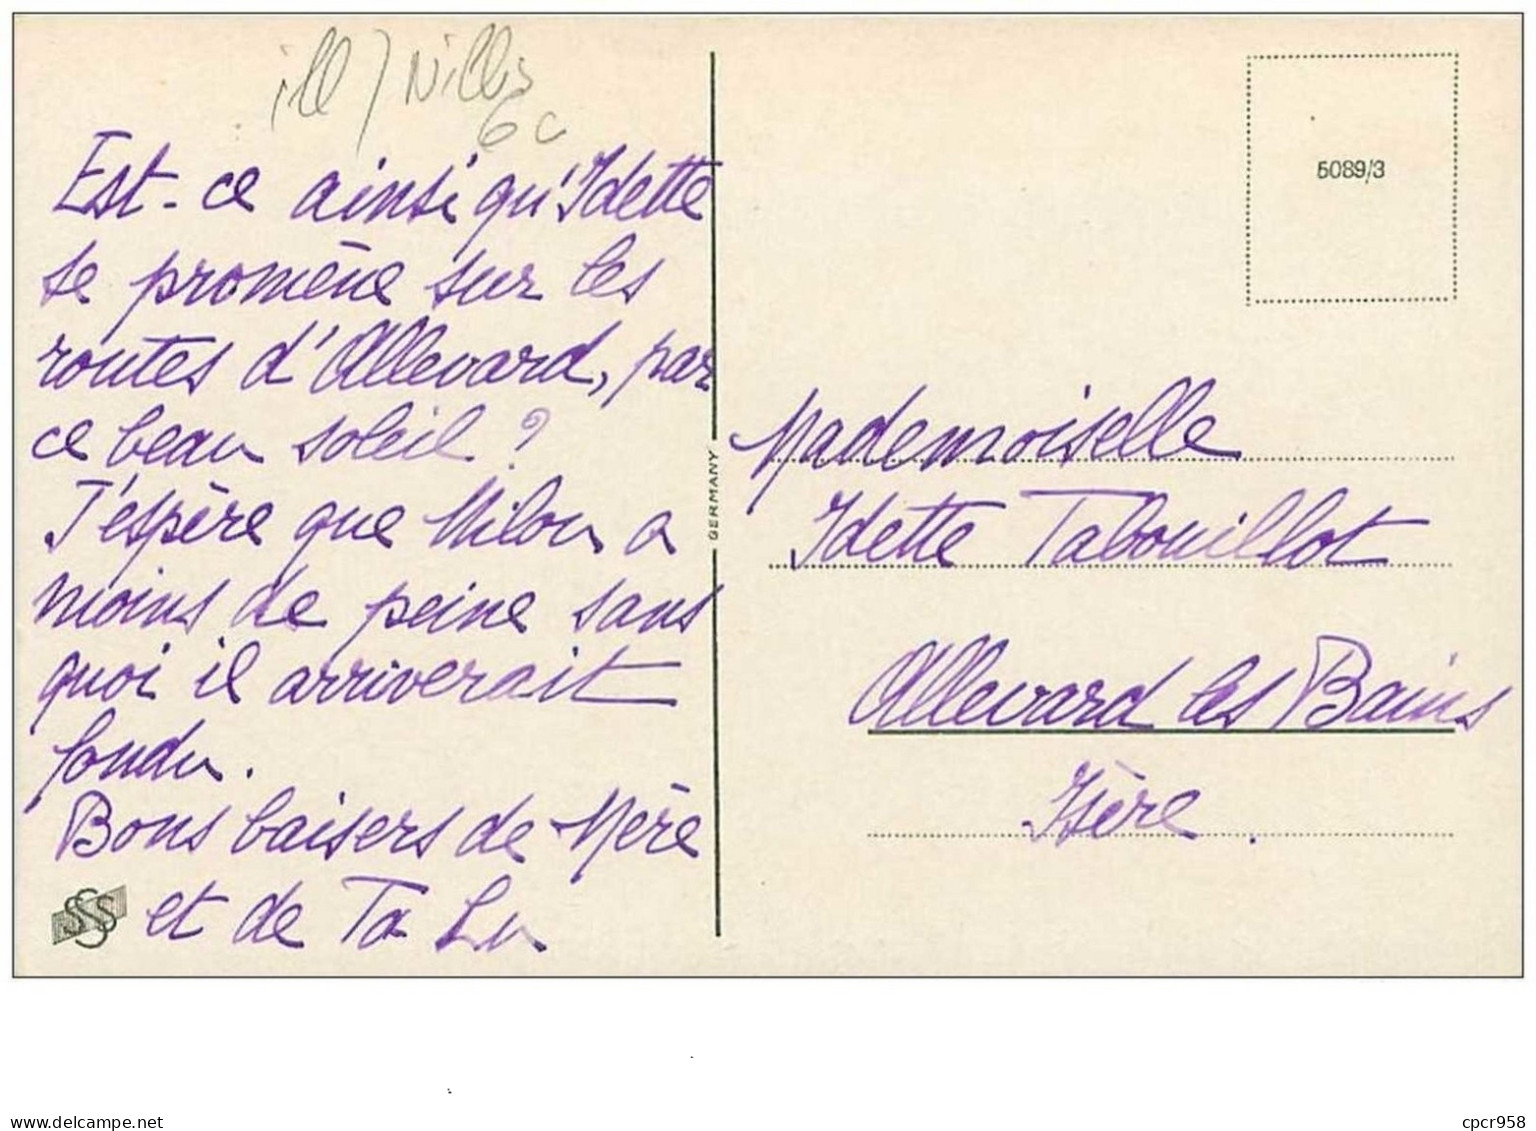 ill) Nillis
6c
Est-ce ainsi qu'Idette
se promène sur les
routes d'Allevard, par
ce beau soleil ?
J'espère que Milou a
moins de peine sans
quoi il arriverait
fondu.
Bons baisers de Mère
et de Ta Lu
SSS
GERMANY
5089/3
Mademoiselle
Idette Tabouillot
Allevard les Bains
Isère.
cpcr958